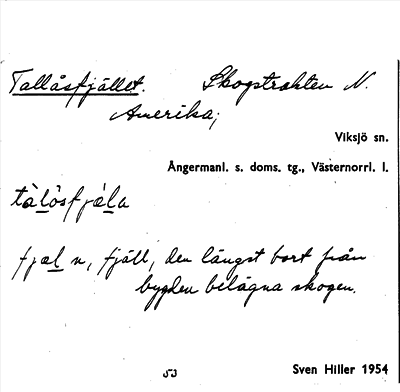 Tallåsfjället. Skogstrakten N.
Amerika;
Viksjö sn.
Ångermanl. s. doms. tg., Västernorrl. l.
tàlòsfjäla
fjæl n, fjäll, den längst bort från
bygden belägna skogen.
53 Sven Hiller 1954